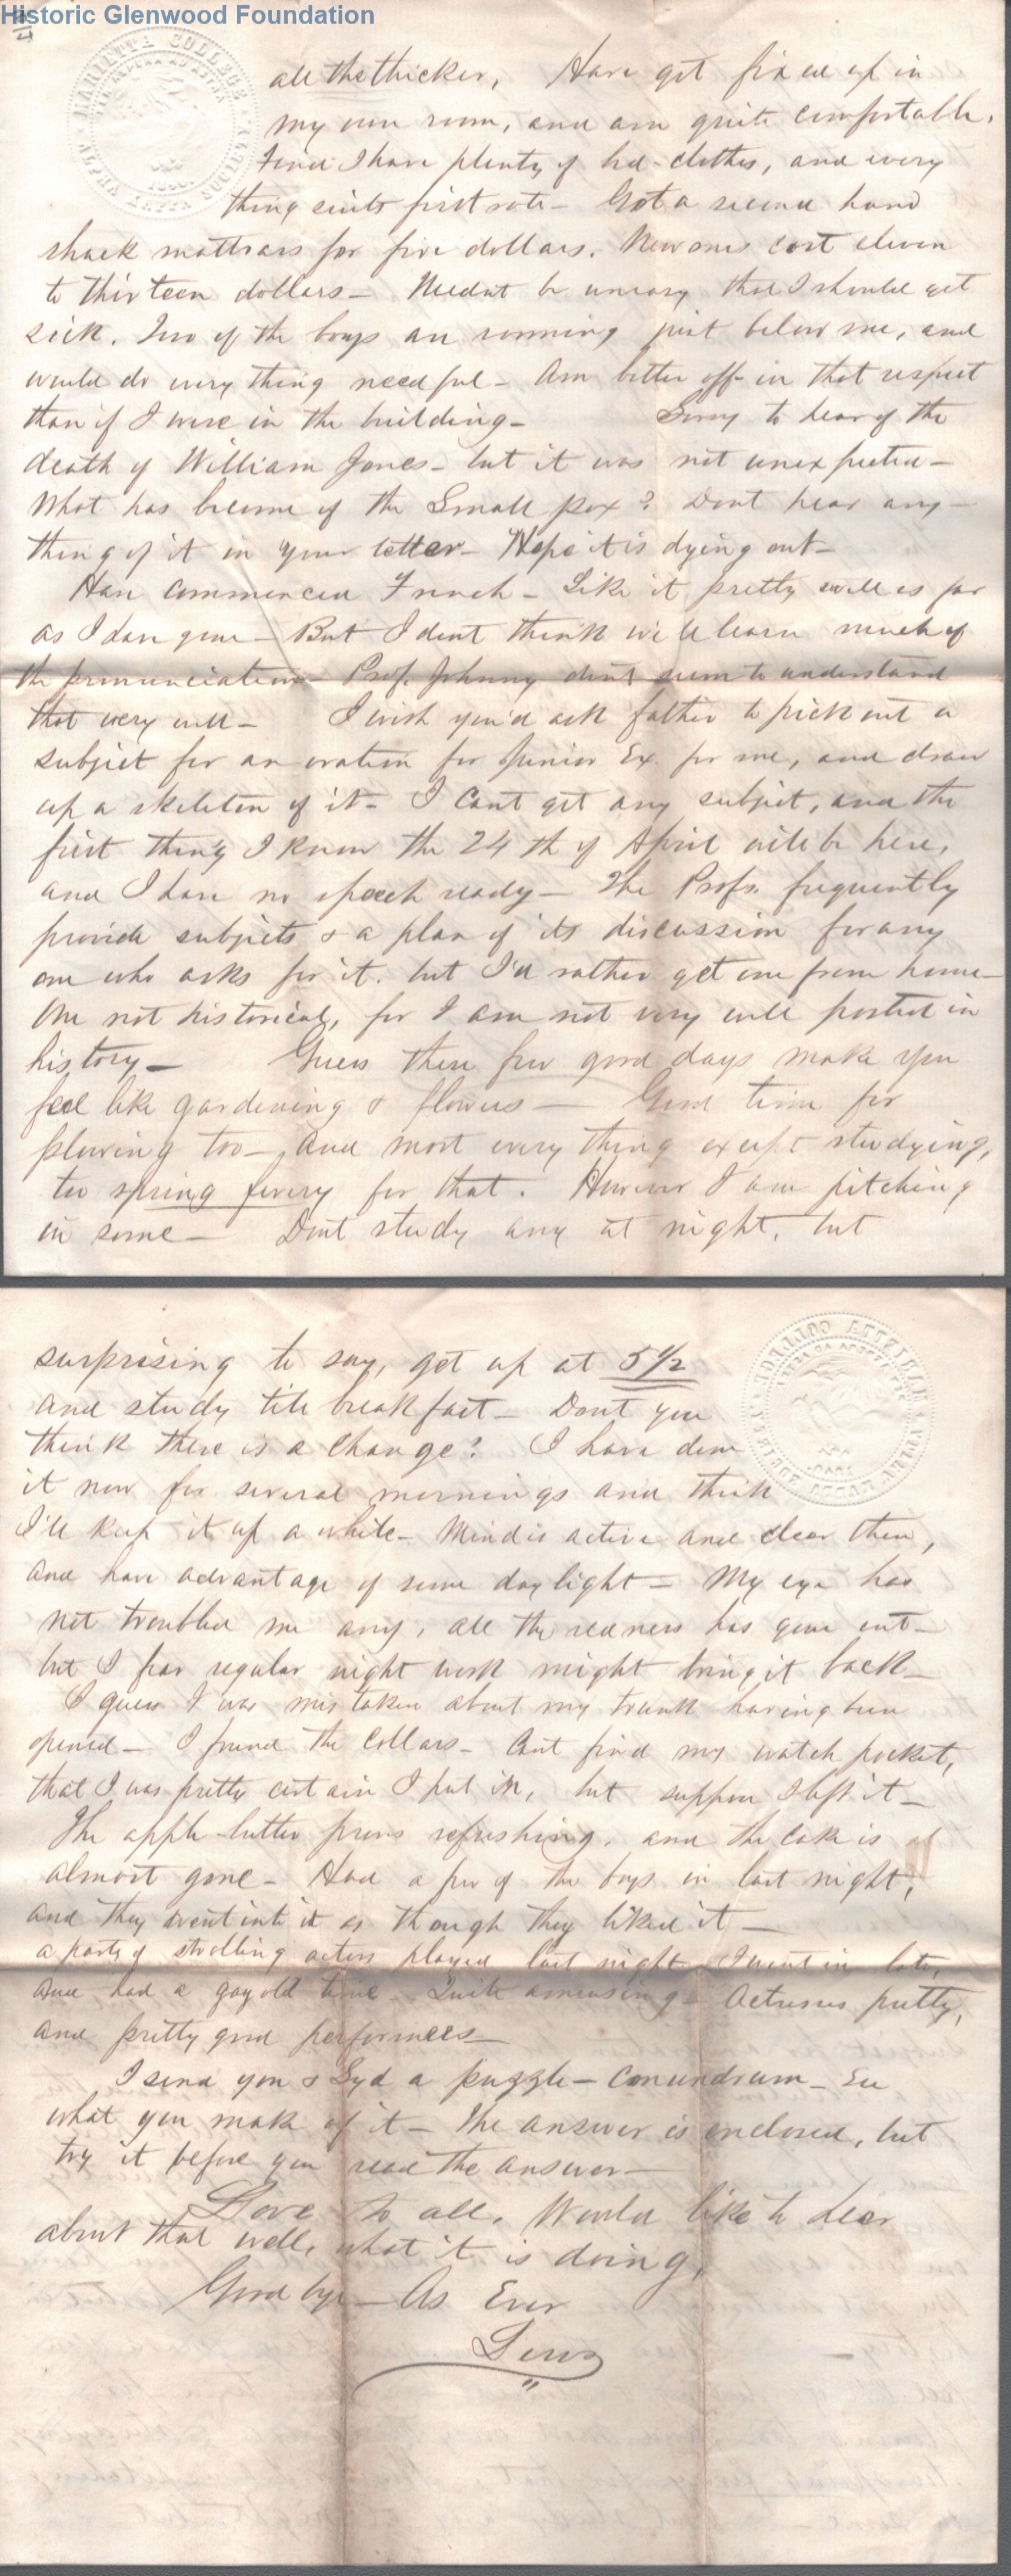 Historic Glenwood Foundation
MARIETTA COLLEGE
ALPHA KAPPA SOCIETY
all the thicker, Have got fixed up in
my own room, and am quite comfortable.
Find I have plenty of bed-clothes, and every
thing suits first rate – Got a second hand
shuck mattrass for five dollars. New ones cost eleven
to thirteen dollars – Neednt be uneasy that I should get
sick. Two of the boys are rooming just below me, and
would do every thing needful – Am better off in that respect
than if I were in the building – Sorry to hear of the
death of William Jones – but it was not unexpected –
What has become of the Small pox? Dont hear any–
thing of it in your letter – Hope it is dying out –
Have commenced French – Like it pretty well as far
as I have gone – But I dont think we'll learn much of
the pronunciation – Prof. Johnny dont seem to understand
that very well – I wish you'd ask father to pick out a
subject for an oration for Junior Ex. for me, and draw
up a skeleton of it – I cant get any subject, and the
first thing I know the 24th of April will be here,
and I have no speech ready – The Profs. frequently
provide subjects & a plan of its discussion for any
one who asks for it. but I'd rather get one from home –
One not historical, for I am not very well posted in
history – Guess these few good days make you
feel like gardening & flowers – Good time for
plowing too – and most every thing except studying,
too spring fevery for that. However I am pitching
in some – Dont study any at night, but
surprising to say, get up at 5 1/2
and study till breakfast – Dont you
think there is a change? I have done
it now for several mornings and think
I'll keep it up a while – Mind is active and clear then,
and have advantage of some daylight – My eye has
not troubled me any, all the redness has gone out –
but I fear regular night work might bring it back –
I guess I was mistaken about my trunk having been
opened – I found the collars – Cant find my watch pocket,
that I was pretty certain I put in, but suppose I left it –
The apple-butter proves refreshing, and the cake is
almost gone – Had a few of the boys in last night,
and they went into it as though they liked it –
a party of strolling actors played last night – I went in late,
and had a gay old time – Quite amusing – Actresses pretty,
and pretty good performers –
I send you & Syd a puzzle – conundrum – See
what you make of it – The answer is enclosed, but
try it before you read the answer –
Love to all. Would like to hear
about that well, what it is doing,
Good bye – As Ever